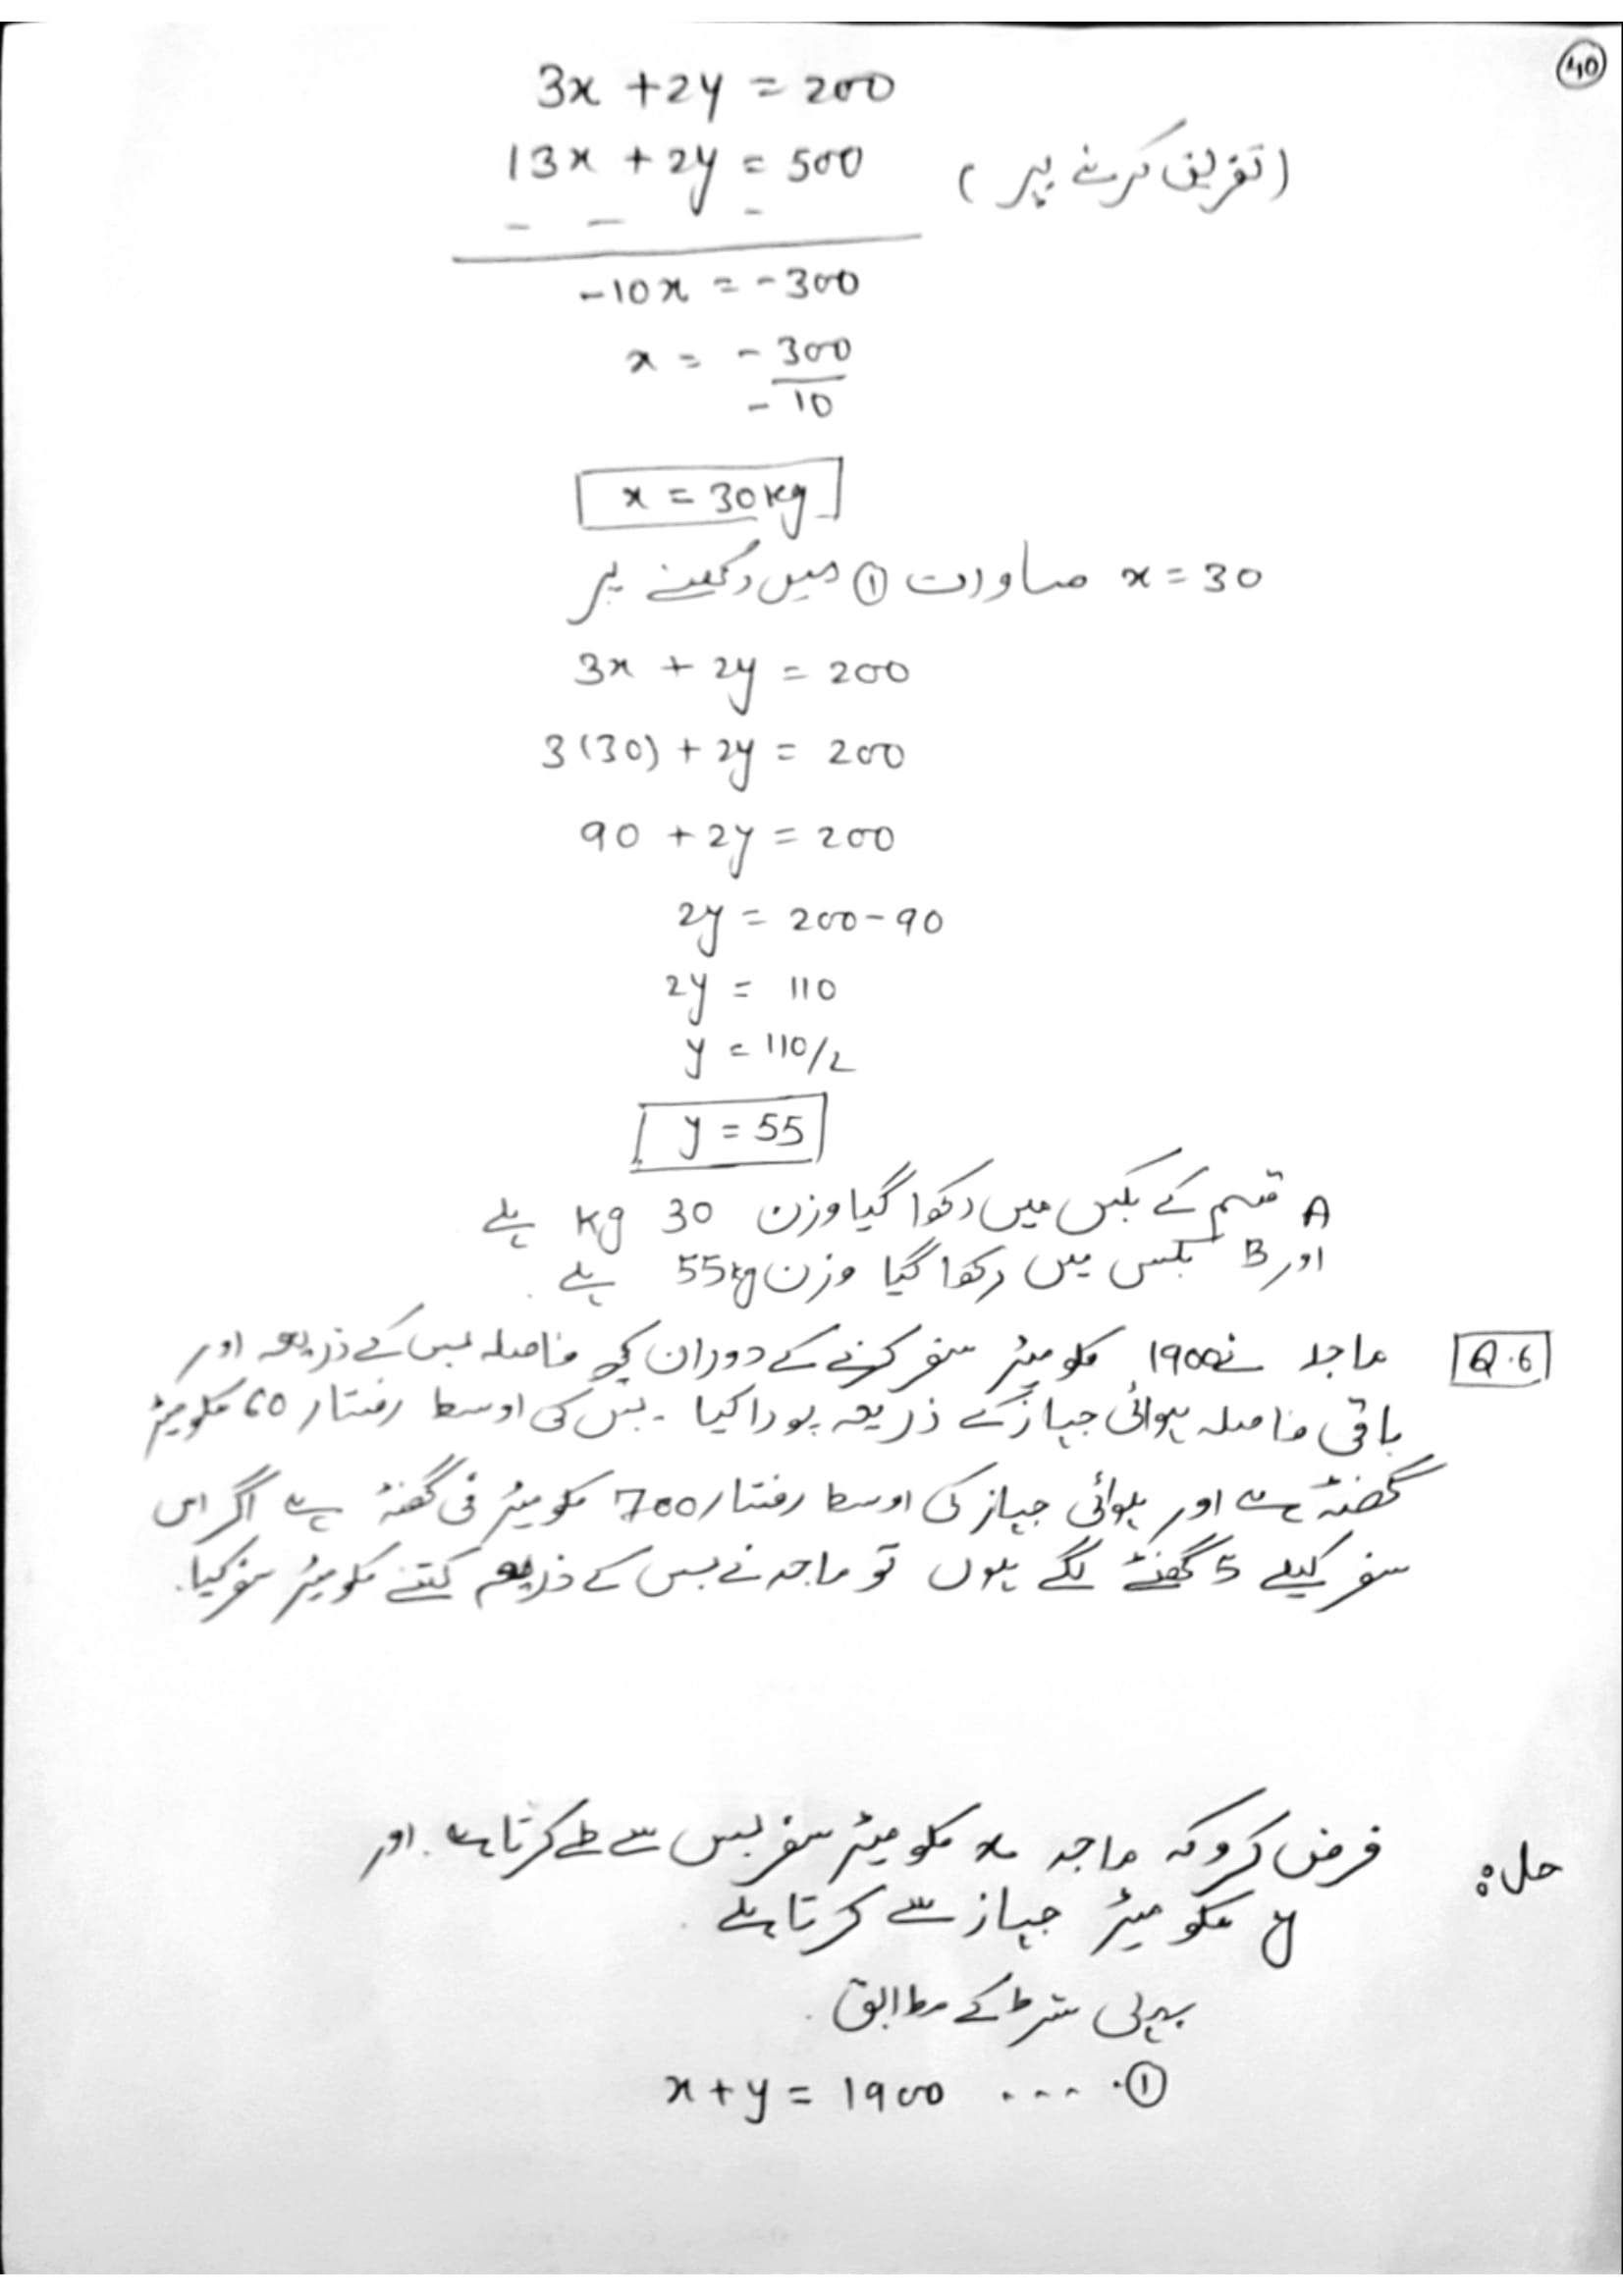 40
3x + 2y = 200
13x + 2y = 500 (تفریق کرنے پر)
- - -
-10x = -300
x = -300/-10
x = 30kg
x = 30 مساوات ① میں رکھنے پر
3x + 2y = 200
3(30) + 2y = 200
90 + 2y = 200
2y = 200-90
2y = 110
y = 110/2
y = 55
A قسم کے بکس میں رکھا گیا وزن 30 kg ہے
اور B بکس میں رکھا گیا وزن 55kg ہے.
Q.6 ماجد نے 1900 کلومیٹر سفر کرنے کے دوران کچھ فاصلہ بس کے ذریعہ اور
باقی فاصلہ ہوائی جہاز کے ذریعہ پورا کیا۔ بس کی اوسط رفتار 60 کلومیٹر
گھنٹہ ہے اور ہوائی جہاز کی اوسط رفتار 700 کلومیٹر فی گھنٹہ ہے اگر اس
سفر کیلے 5 گھنٹے لگے ہوں تو ماجد نے بس کے ذریعہ کتنے کلومیٹر سفر کیا.
حل: فرض کرو کہ ماجد x کلومیٹر سفر بس سے طے کرتا ہے. اور
y کلومیٹر جہاز سے کرتا ہے.
پہلی شرط کے مطابق.
x + y = 1900 ..... ①